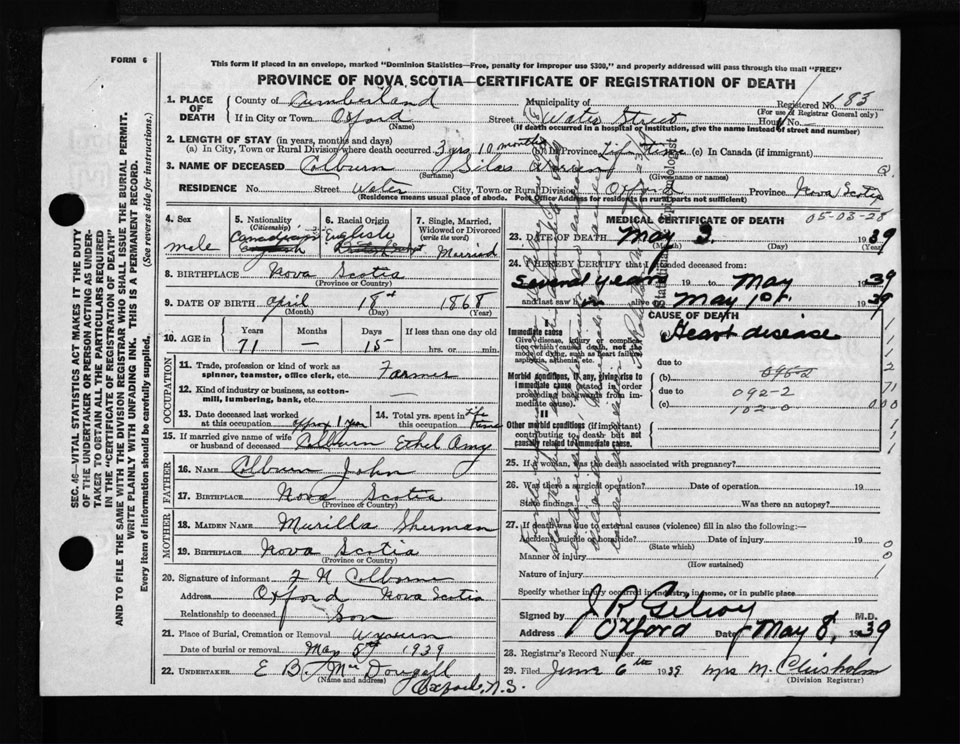 FORM 6
This form if placed in an envelope, marked "Dominion Statistics—Free, penalty for improper use $300," and properly addressed will pass through the mail "FREE"
PROVINCE OF NOVA SCOTIA—CERTIFICATE OF REGISTRATION OF DEATH
SEC. 46—VITAL STATISTICS ACT MAKES IT THE DUTY
OF THE UNDERTAKER OR PERSON ACTING AS UNDER-
TAKER TO OBTAIN ALL THE PARTICULARS REQUIRED
IN THE "CERTIFICATE OF REGISTRATION OF DEATH"
AND TO FILE THE SAME WITH THE DIVISION REGISTRAR WHO SHALL ISSUE THE BURIAL PERMIT.
WRITE PLAINLY WITH UNFADING INK. THIS IS A PERMANENT RECORD.
Every item of information should be carefully supplied. (See reverse side for instructions.)
1. PLACE OF DEATH County of Cumberland Municipality of Registered No. 183
(For use of Registrar General only)
If in City or Town Oxford (Name) Street Water Street Hour No.
(If death occurred in a hospital or institution, give the name instead of street and number)
2. LENGTH OF STAY (in years, months and days)
(a) In City, Town or Rural Division where death occurred 3 yrs 10 months (b) In Province Life time (c) In Canada (if immigrant)
3. NAME OF DECEASED Colburn Silas
(Surname) (Given name or names)
RESIDENCE No. Street Water City, Town or Rural Division Oxford Province Nova Scotia
(Residence means usual place of abode. Post Office Address for residents in rural parts not sufficient)
4. Sex male
5. Nationality (Citizenship) Canadian
6. Racial Origin English
7. Single, Married, Widowed or Divorced (write the word) Married
8. BIRTHPLACE Nova Scotia
(Province or Country)
9. DATE OF BIRTH April 18 1868
(Month) (Day) (Year)
10. AGE in Years 71 Months — Days 15 If less than one day old hrs. or min.
OCCUPATION
11. Trade, profession or kind of work as spinner, teamster, office clerk, etc. Farmer
12. Kind of industry or business, as cotton-mill, lumbering, bank, etc. —
13. Date deceased last worked at this occupation approx 1 year
14. Total yrs. spent in this occupation Life time
15. If married give name of wife or husband of deceased Colburn Ethel Amy
FATHER
16. NAME Colburn John
17. BIRTHPLACE Nova Scotia
(Province or Country)
MOTHER
18. MAIDEN NAME Murilla Sherman
19. BIRTHPLACE Nova Scotia
(Province or Country)
20. Signature of informant Colborne
Address Oxford Nova Scotia
Relationship to deceased Son
21. Place of Burial, Cremation or Removal
Date of burial or removal May 5th 1939
22. UNDERTAKER E B. McDougall
(Name and address) Oxford, N.S.
MEDICAL CERTIFICATE OF DEATH
05-03-28
23. DATE OF DEATH May 3 1939
(Month) (Day)
24. I HEREBY CERTIFY that I attended deceased from:
several years 19 to May 1939
and last saw h im alive on May 1st 1939
CAUSE OF DEATH
Immediate cause (a) Heart disease
Give disease, injury or complication which caused death, not the mode of dying, such as heart failure, asphyxia, asthenia, etc.
due to
Morbid conditions, if any, giving rise to immediate cause (stated in order proceeding backwards from immediate cause).
(b)
due to 092-2
(c) 102-0
II
Other morbid conditions (if important) contributing to death but not causally related to immediate cause.
25. If a woman, was the death associated with pregnancy?
26. Was there a surgical operation? Date of operation 19
State findings Was there an autopsy?
27. If death was due to external causes (violence) fill in also the following:—
Accident, suicide or homicide? Date of injury 19
(State which)
Manner of injury
(How sustained)
Nature of injury
Specify whether injury occurred in industry, in home, or in public place
Signed by J R Gilroy M.D.
Address Oxford Date May 8, 1939
28. Registrar's Record Number
29. Filed June 6th 1939 Mrs M. Chisholm
(Division Registrar)